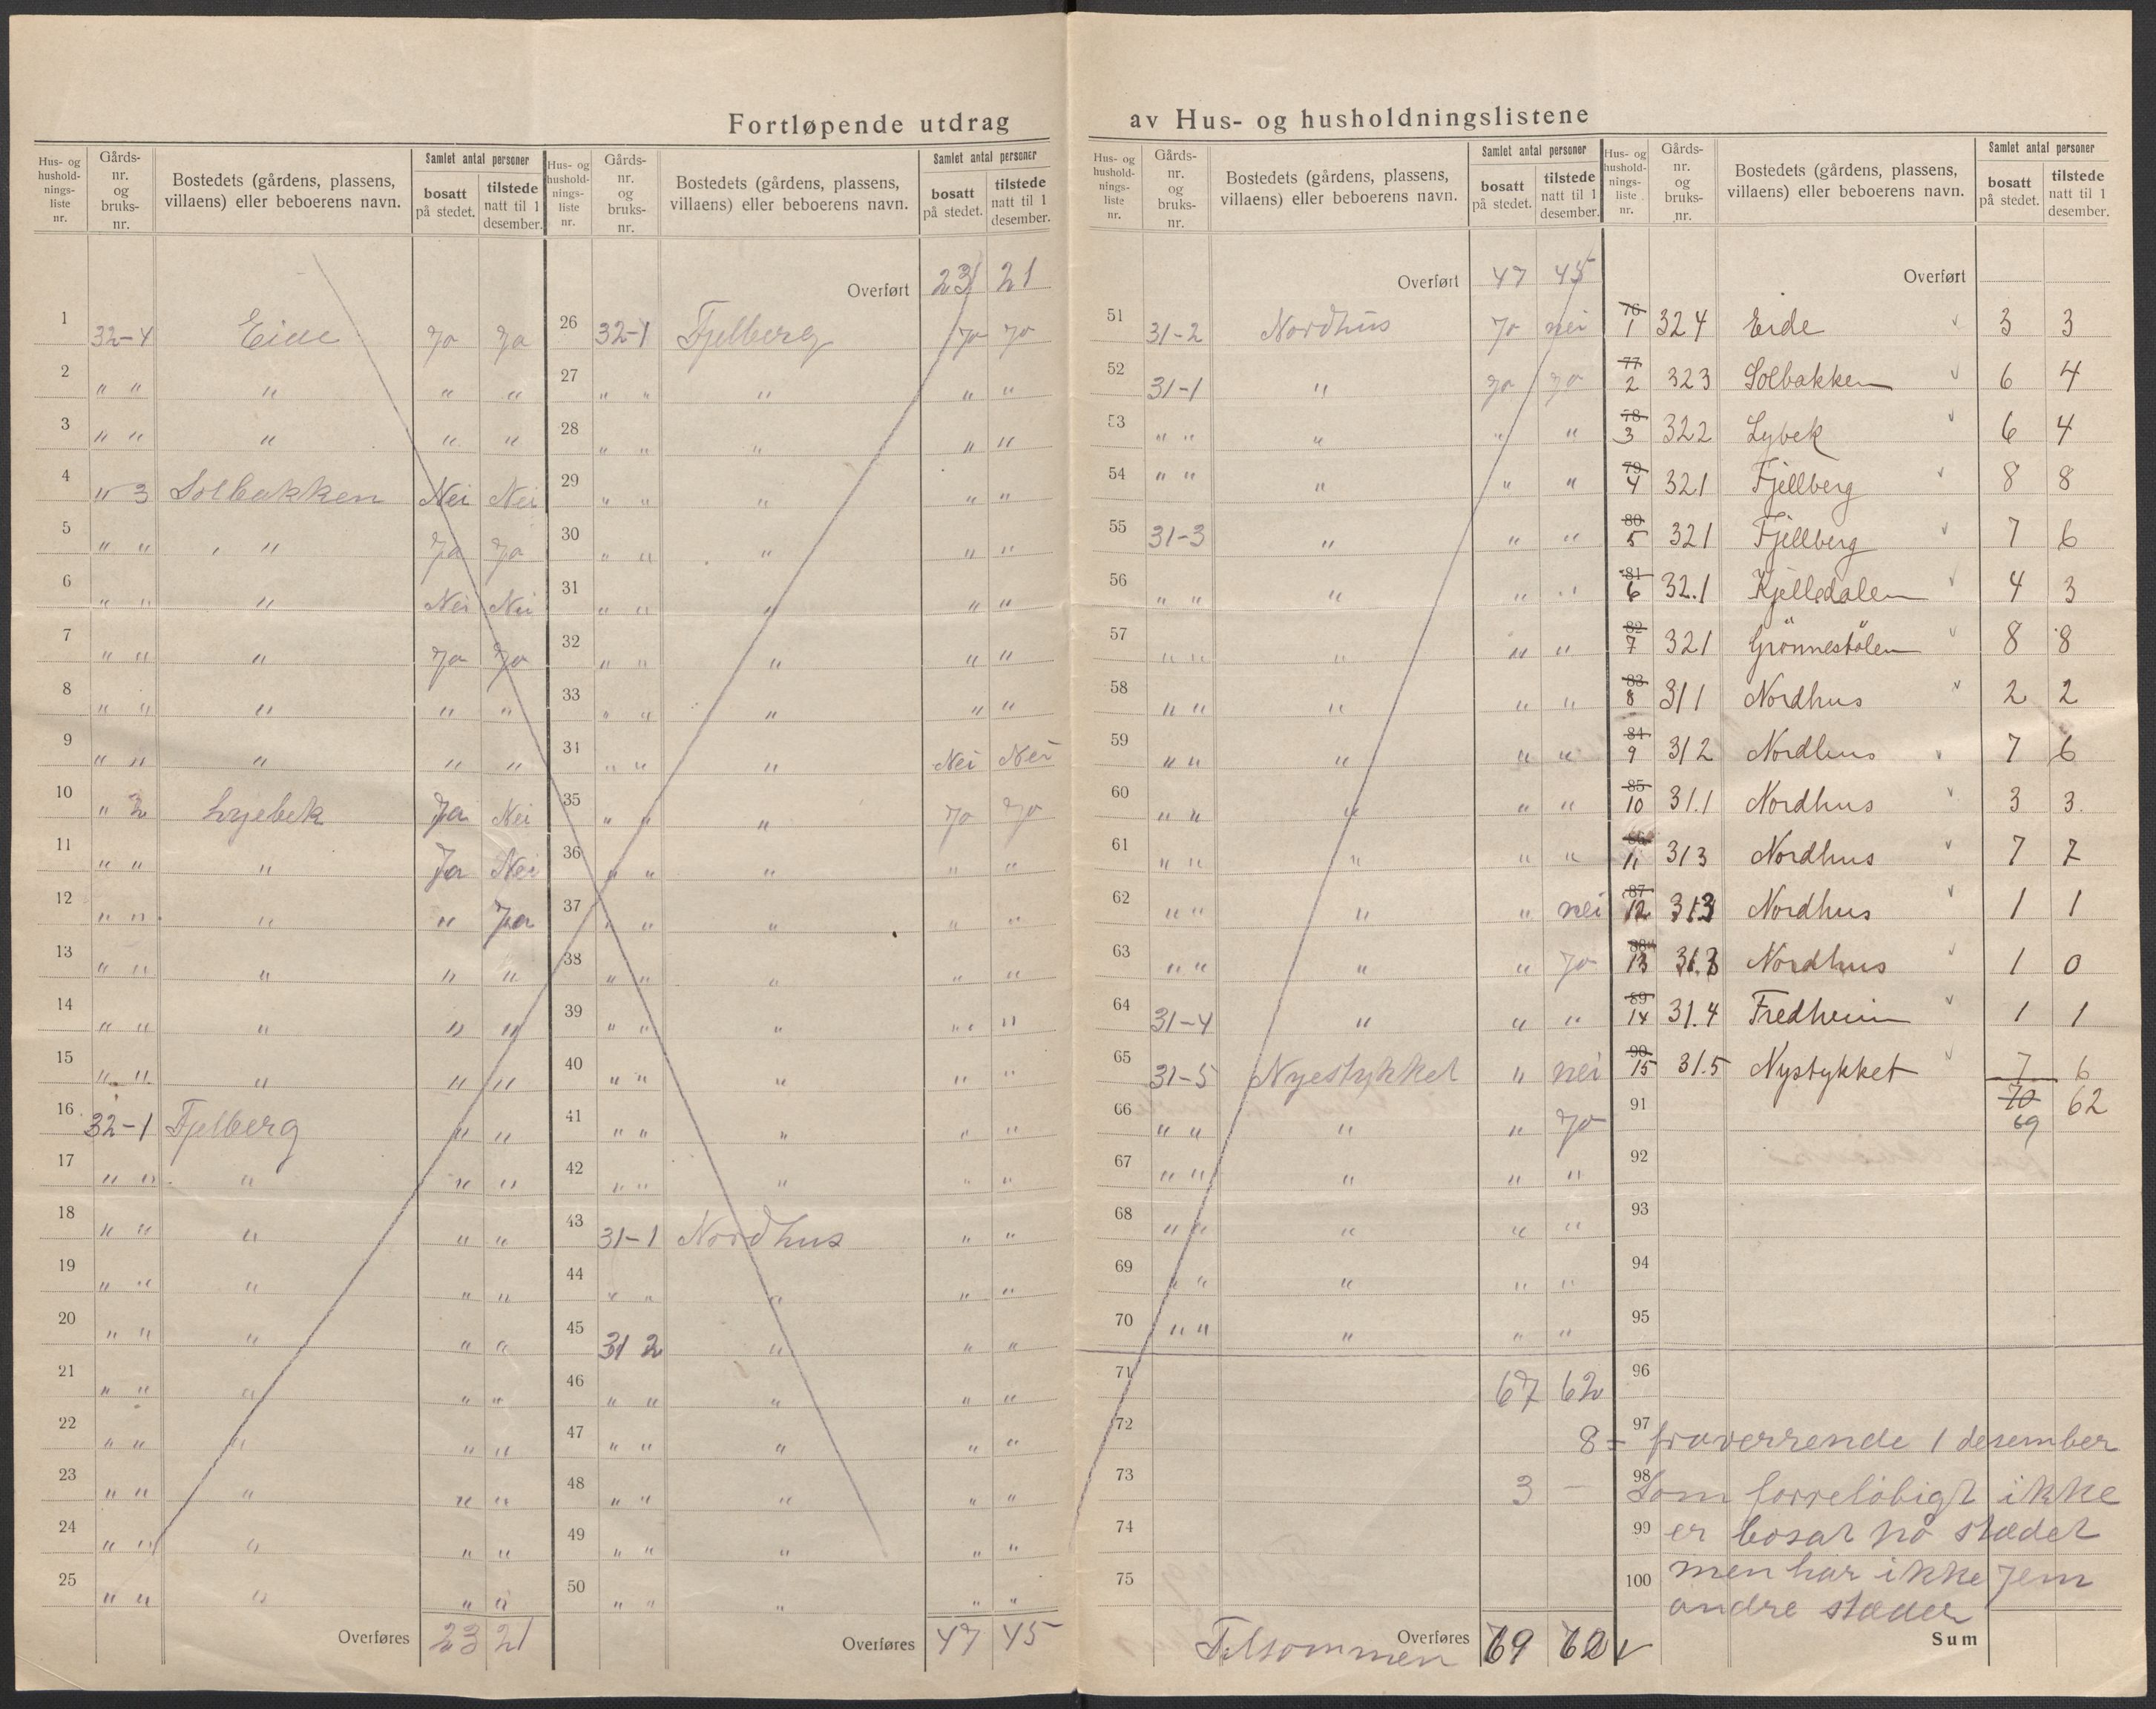 Fortløpende utdrag av Hus- og husholdningslistene
Hus- og hushold- nings- liste nr. | Gårds- nr. og bruks- nr. | Bostedets (gårdens, plassens, villaens) eller beboerens navn. | Samlet antal personer | bosatt på stedet. | tilstede natt til 1 desember.
1 32-4 Eide Ja Ja
2 " " " " "
3 " " " " "
4 " 3 Solbakken Nei Nei
5 " " " Ja Ja
6 " " " Nei Nei
7 " " " Ja Ja
8 " " " " "
9 " " " " "
10 " 2 Lyebek Ja Nei
11 " " " Ja Nei
12 " " " " Ja
13 " " " " "
14 " " " " "
15 " " " " "
16 32-1 Fjelberg " "
17 " " " " "
18 " " " " "
19 " " " " "
20 " " " " "
21 " " " " "
22 " " " " "
23 " " " " "
24 " " " " "
25 " " " " "
Overføres 23 21
Hus- og hushold- nings- liste nr. | Gårds- nr. og bruks- nr. | Bostedets (gårdens, plassens, villaens) eller beboerens navn. | Samlet antal personer | bosatt på stedet. | tilstede natt til 1 desember.
Overført 23 21
26 32-1 Fjelberg Ja Ja
27 " " " " "
28 " " " " "
29 " " " " "
30 " " " " "
31 " " " " "
32 " " " " "
33 " " " " "
34 " " " Nei Nei
35 " " " Ja Ja
36 " " " " "
37 " " " " "
38 " " " " "
39 " " " " "
40 " " " " "
41 " " " " "
42 " " " " "
43 31-1 Nordhus " "
44 " " " " "
45 31 2 " " "
46 " " " " "
47 " " " " "
48 " " " " "
49 " " " " "
50 " " " " "
Overføres 47 45
Hus- og hushold- nings- liste nr. | Gårds- nr. og bruks- nr. | Bostedets (gårdens, plassens, villaens) eller beboerens navn. | Samlet antal personer | bosatt på stedet. | tilstede natt til 1 desember.
Overført 47 45
51 31-2 Nordhus Ja nei
52 31-1 " Ja Ja
53 " " " " "
54 " " " " "
55 31-3 " " "
56 " " " " "
57 " " " " "
58 " " " " "
59 " " " " "
60 " " " " "
61 " " " " "
62 " " " " nei
63 " " " " Ja
64 31-4 " " "
65 31-5 Nyestykket " nei
66 " " " " Ja
67 " " " " "
68 " " " " "
69 " " " " "
70 " " " " "
71 67 62
72 8 =
73 3 -
74
75
Tilsammen Overføres 69 62
Hus- og hushold- nings- liste nr. | Gårds- nr. og bruks- nr. | Bostedets (gårdens, plassens, villaens) eller beboerens navn. | Samlet antal personer | bosatt på stedet. | tilstede natt til 1 desember.
Overført
76 1 324 Eide 3 3
77 2 323 Solbakken 6 4
78 3 322 Lybek 6 4
79 4 321 Fjellberg 8 8
80 5 321 Fjellberg 7 6
81 6 32.1 Kjelledalen 4 3
82 7 321 Grönnestölen 8 8
83 8 311 Nordhus 2 2
84 9 312 Nordhus 7 6
85 10 31.1 Nordhus 3 3.
86 11 313 Nordhus 7 7
87 12 313 Nordhus 1 1
88 13 31.3 Nordhus 1 0
89 14 31.4 Fredheim 1 1
90 15 31.5 Nystykket 7 6
91 70 62
69
92
93
94
95
96
97 fraverrende 1 desember
98 Som forreløbigt ikke
99 er bosat på stædet
100 men har ikke jem
andre stæder
Sum